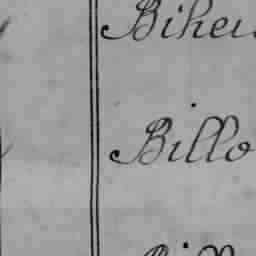 Bihei
Billo